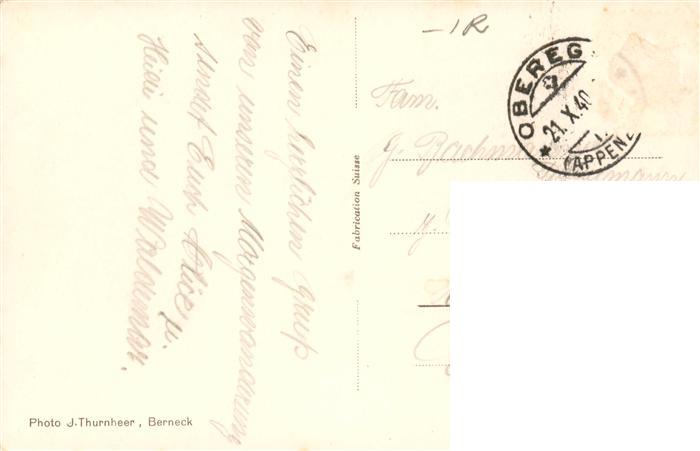 -1R
OBEREG
21.X.40
(APPENZ
Einen herzlichen Gruß
von unserer Morgenwanderung
sendet Euch Alice,
Heidi und Waldemar.
Fam.
G. Bachm
Fabrication Suisse
Photo J. Thurnheer, Berneck